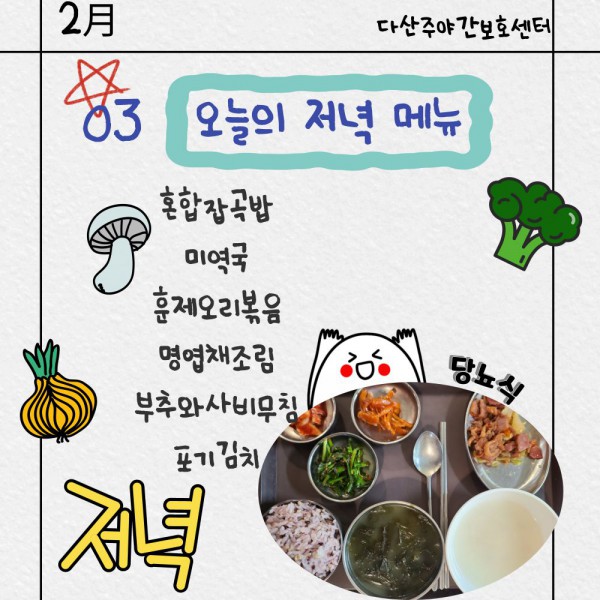 2月
다산주야간보호센터
03
오늘의 저녁 메뉴
혼합잡곡밥
미역국
훈제오리볶음
명엽채조림
부추와사비무침
포기김치
당뇨식
저녁